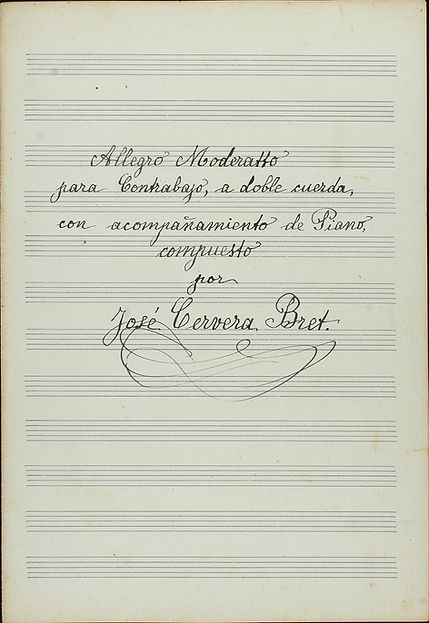 Allegro Moderatto
para Contrabajo, a doble cuerda,
con acompañamiento de Piano,
compuesto
por
José Cervera Bret.